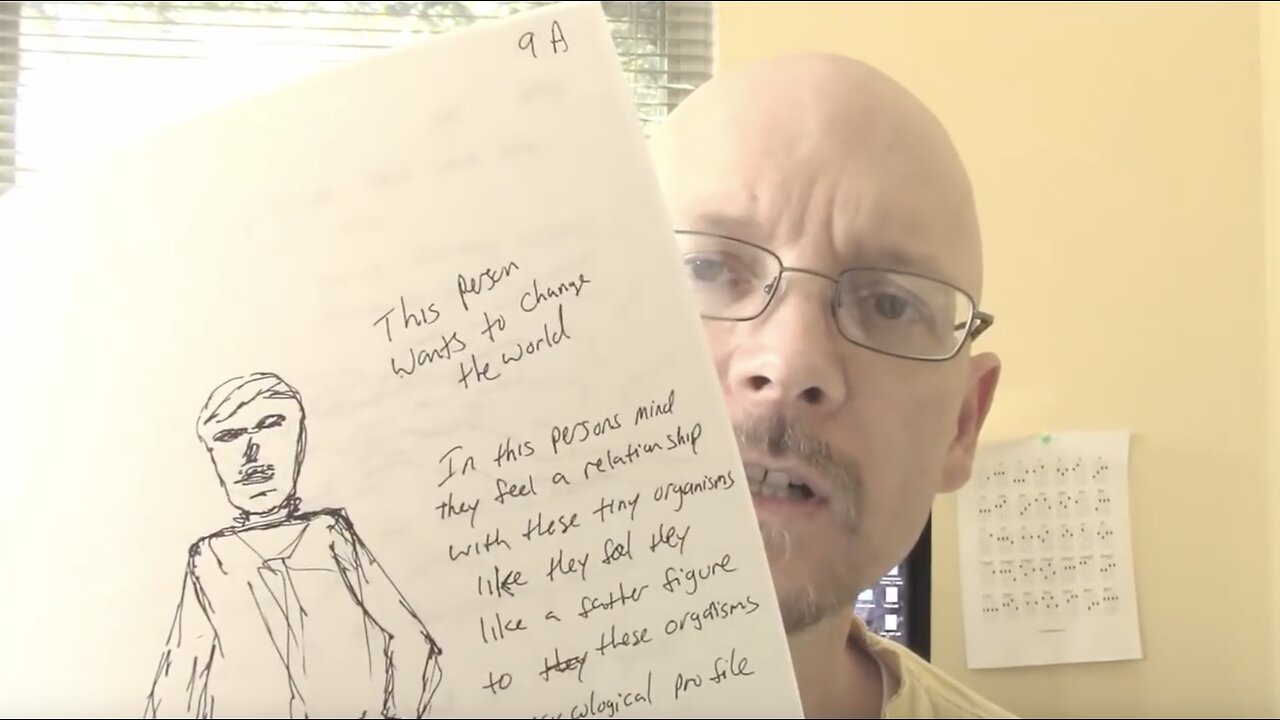 9A
This person
wants to change
the world
In this persons mind
they feel a relationship
with these tiny organisms
like they feel they
like a father figure
to they these organisms
profile